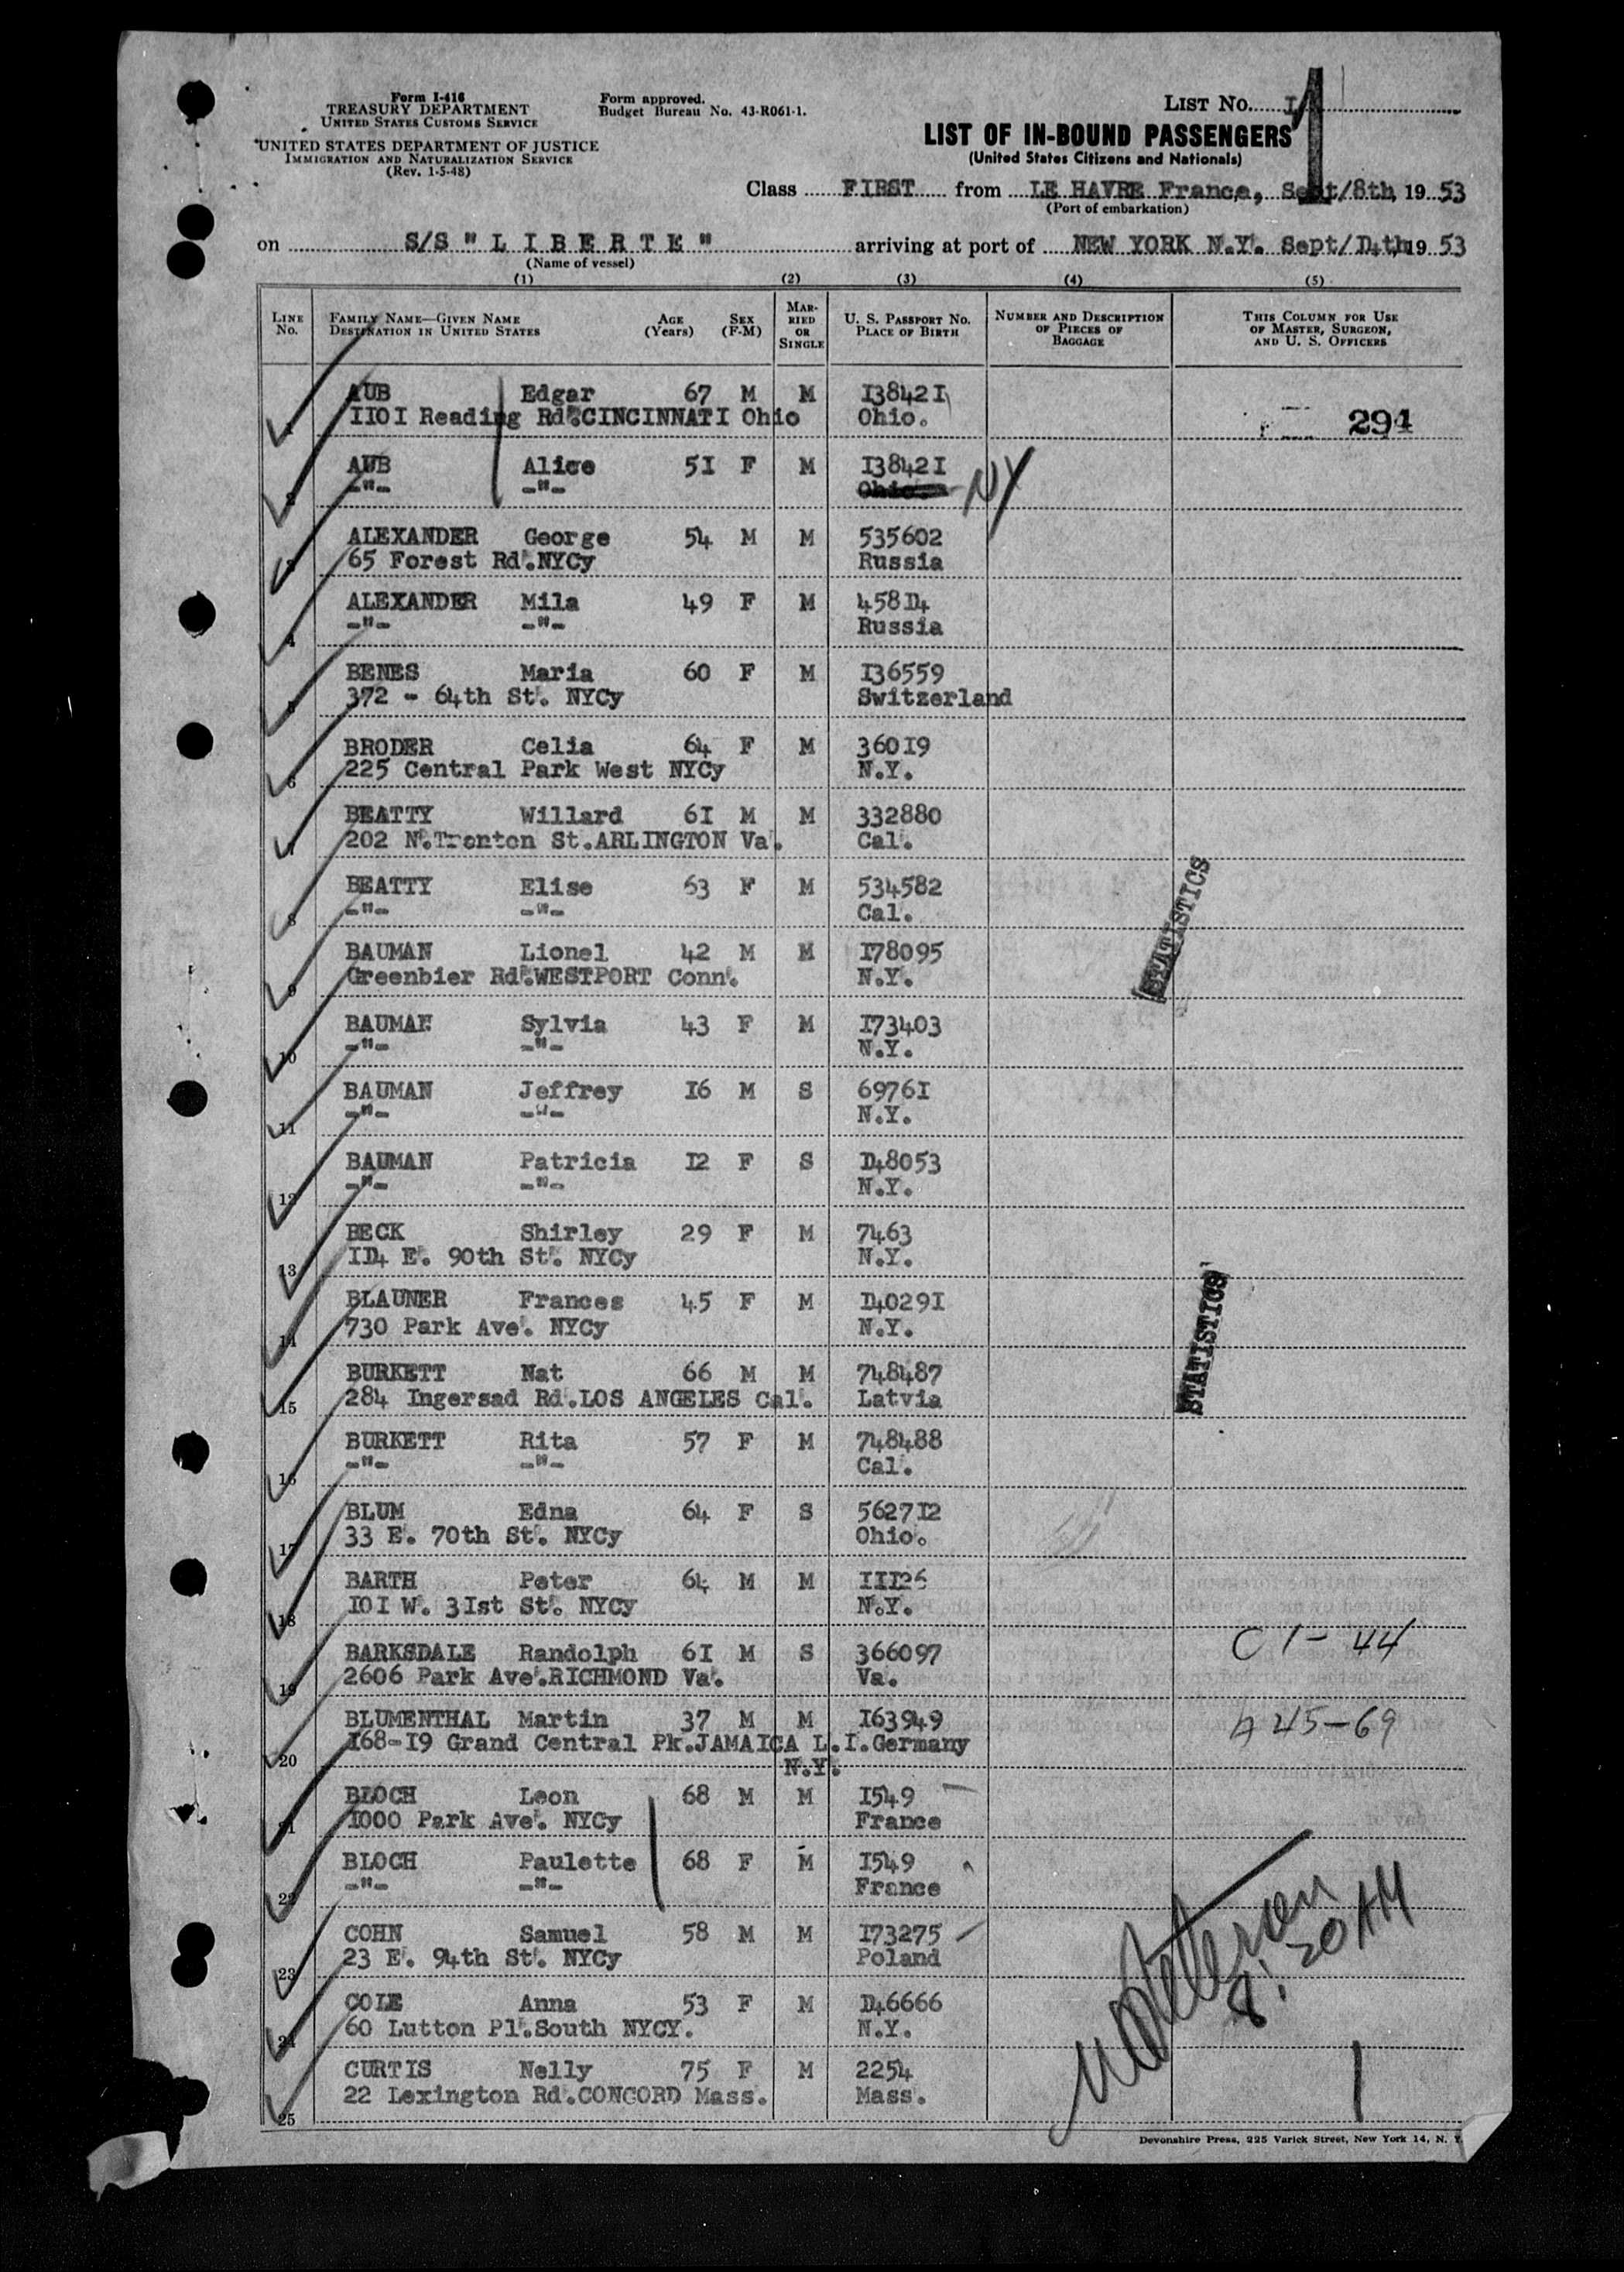 Form I-416
TREASURY DEPARTMENT
UNITED STATES CUSTOMS SERVICE
UNITED STATES DEPARTMENT OF JUSTICE
IMMIGRATION AND NATURALIZATION SERVICE
(Rev. 1-5-48)
Form approved.
Budget Bureau No. 43-R061-1.
LIST No. I
1
LIST OF IN-BOUND PASSENGERS
(United States Citizens and Nationals)
Class FIRST from LE HAVRE France, Sept/8th, 19 53
(Port of embarkation)
on S/S "LIBERTE" arriving at port of NEW YORK N.Y. Sept/14th, 19 53
(Name of vessel)
(1) (2) (3) (4) (5)
LINE No. FAMILY NAME—GIVEN NAME DESTINATION IN UNITED STATES AGE (Years) SEX (F-M) MARRIED OR SINGLE U. S. PASSPORT No. PLACE OF BIRTH NUMBER AND DESCRIPTION OF PIECES OF BAGGAGE THIS COLUMN FOR USE OF MASTER, SURGEON, AND U. S. OFFICERS
AUB Edgar 67 M M I3842I
1 IIOI Reading Rd.CINCINNATI Ohio Ohio. 294
AUB Alice 5I F M I3842I
2 -"- -"- Ohio. NY
ALEXANDER George 54 M M 535602
3 65 Forest Rd.NYCy Russia
ALEXANDER Mila 49 F M 458I4
4 -"- -"- Russia
BENES Maria 60 F M I36559
5 372 - 64th St. NYCy Switzerland
BRODER Celia 64 F M 360I9
6 225 Central Park West NYCy N.Y.
BEATTY Willard 6I M M 332880
7 202 N.Trenton St.ARLINGTON Va. Cal.
BEATTY Elise 63 F M 534582
8 -"- -"- Cal.
BAUMAN Lionel 42 M M I78095
9 Greenbier Rd.WESTPORT Conn. N.Y.
STATISTICS
BAUMAN Sylvia 43 F M I73403
10 -"- -"- N.Y.
BAUMAN Jeffrey I6 M S 6976I
11 -"- -"- N.Y.
BAUMAN Patricia I2 F S I48053
12 -"- -"- N.Y.
BECK Shirley 29 F M 7463
13 II4 E. 90th St. NYCy N.Y.
BLAUNER Frances 45 F M I4029I
14 730 Park Ave. NYCy N.Y.
STATISTICS
BURKETT Nat 66 M M 748487
15 284 Ingersad Rd.LOS ANGELES Cal. Latvia
BURKETT Rita 57 F M 748488
16 -"- -"- Cal.
BLUM Edna 64 F S 5627I2
17 33 E. 70th St. NYCy Ohio.
BARTH Peter 64 M M III26
18 IOI W. 3Ist St. NYCy N.Y.
BARKSDALE Randolph 6I M S 366097 C1-44
19 2606 Park Ave.RICHMOND Va. Va.
BLUMENTHAL Martin 37 M M I63949 A45-69
20 I68-I9 Grand Central Pk.JAMAICA L.I.Germany
N.Y.
BLOCH Leon 68 M M I549
21 I000 Park Ave. NYCy France
BLOCH Paulette 68 F M I549
22 -"- -"- France
COHN Samuel 58 M M I73275
23 23 E. 94th St. NYCy Poland
8:30AM
COLE Anna 53 F M I46666
24 60 Lutton Pl.South NYCY. N.Y.
CURTIS Nelly 75 F M 2254
25 22 Lexington Rd.CONCORD Mass. Mass.
Devonshire Press, 225 Varick Street, New York 14, N. Y.